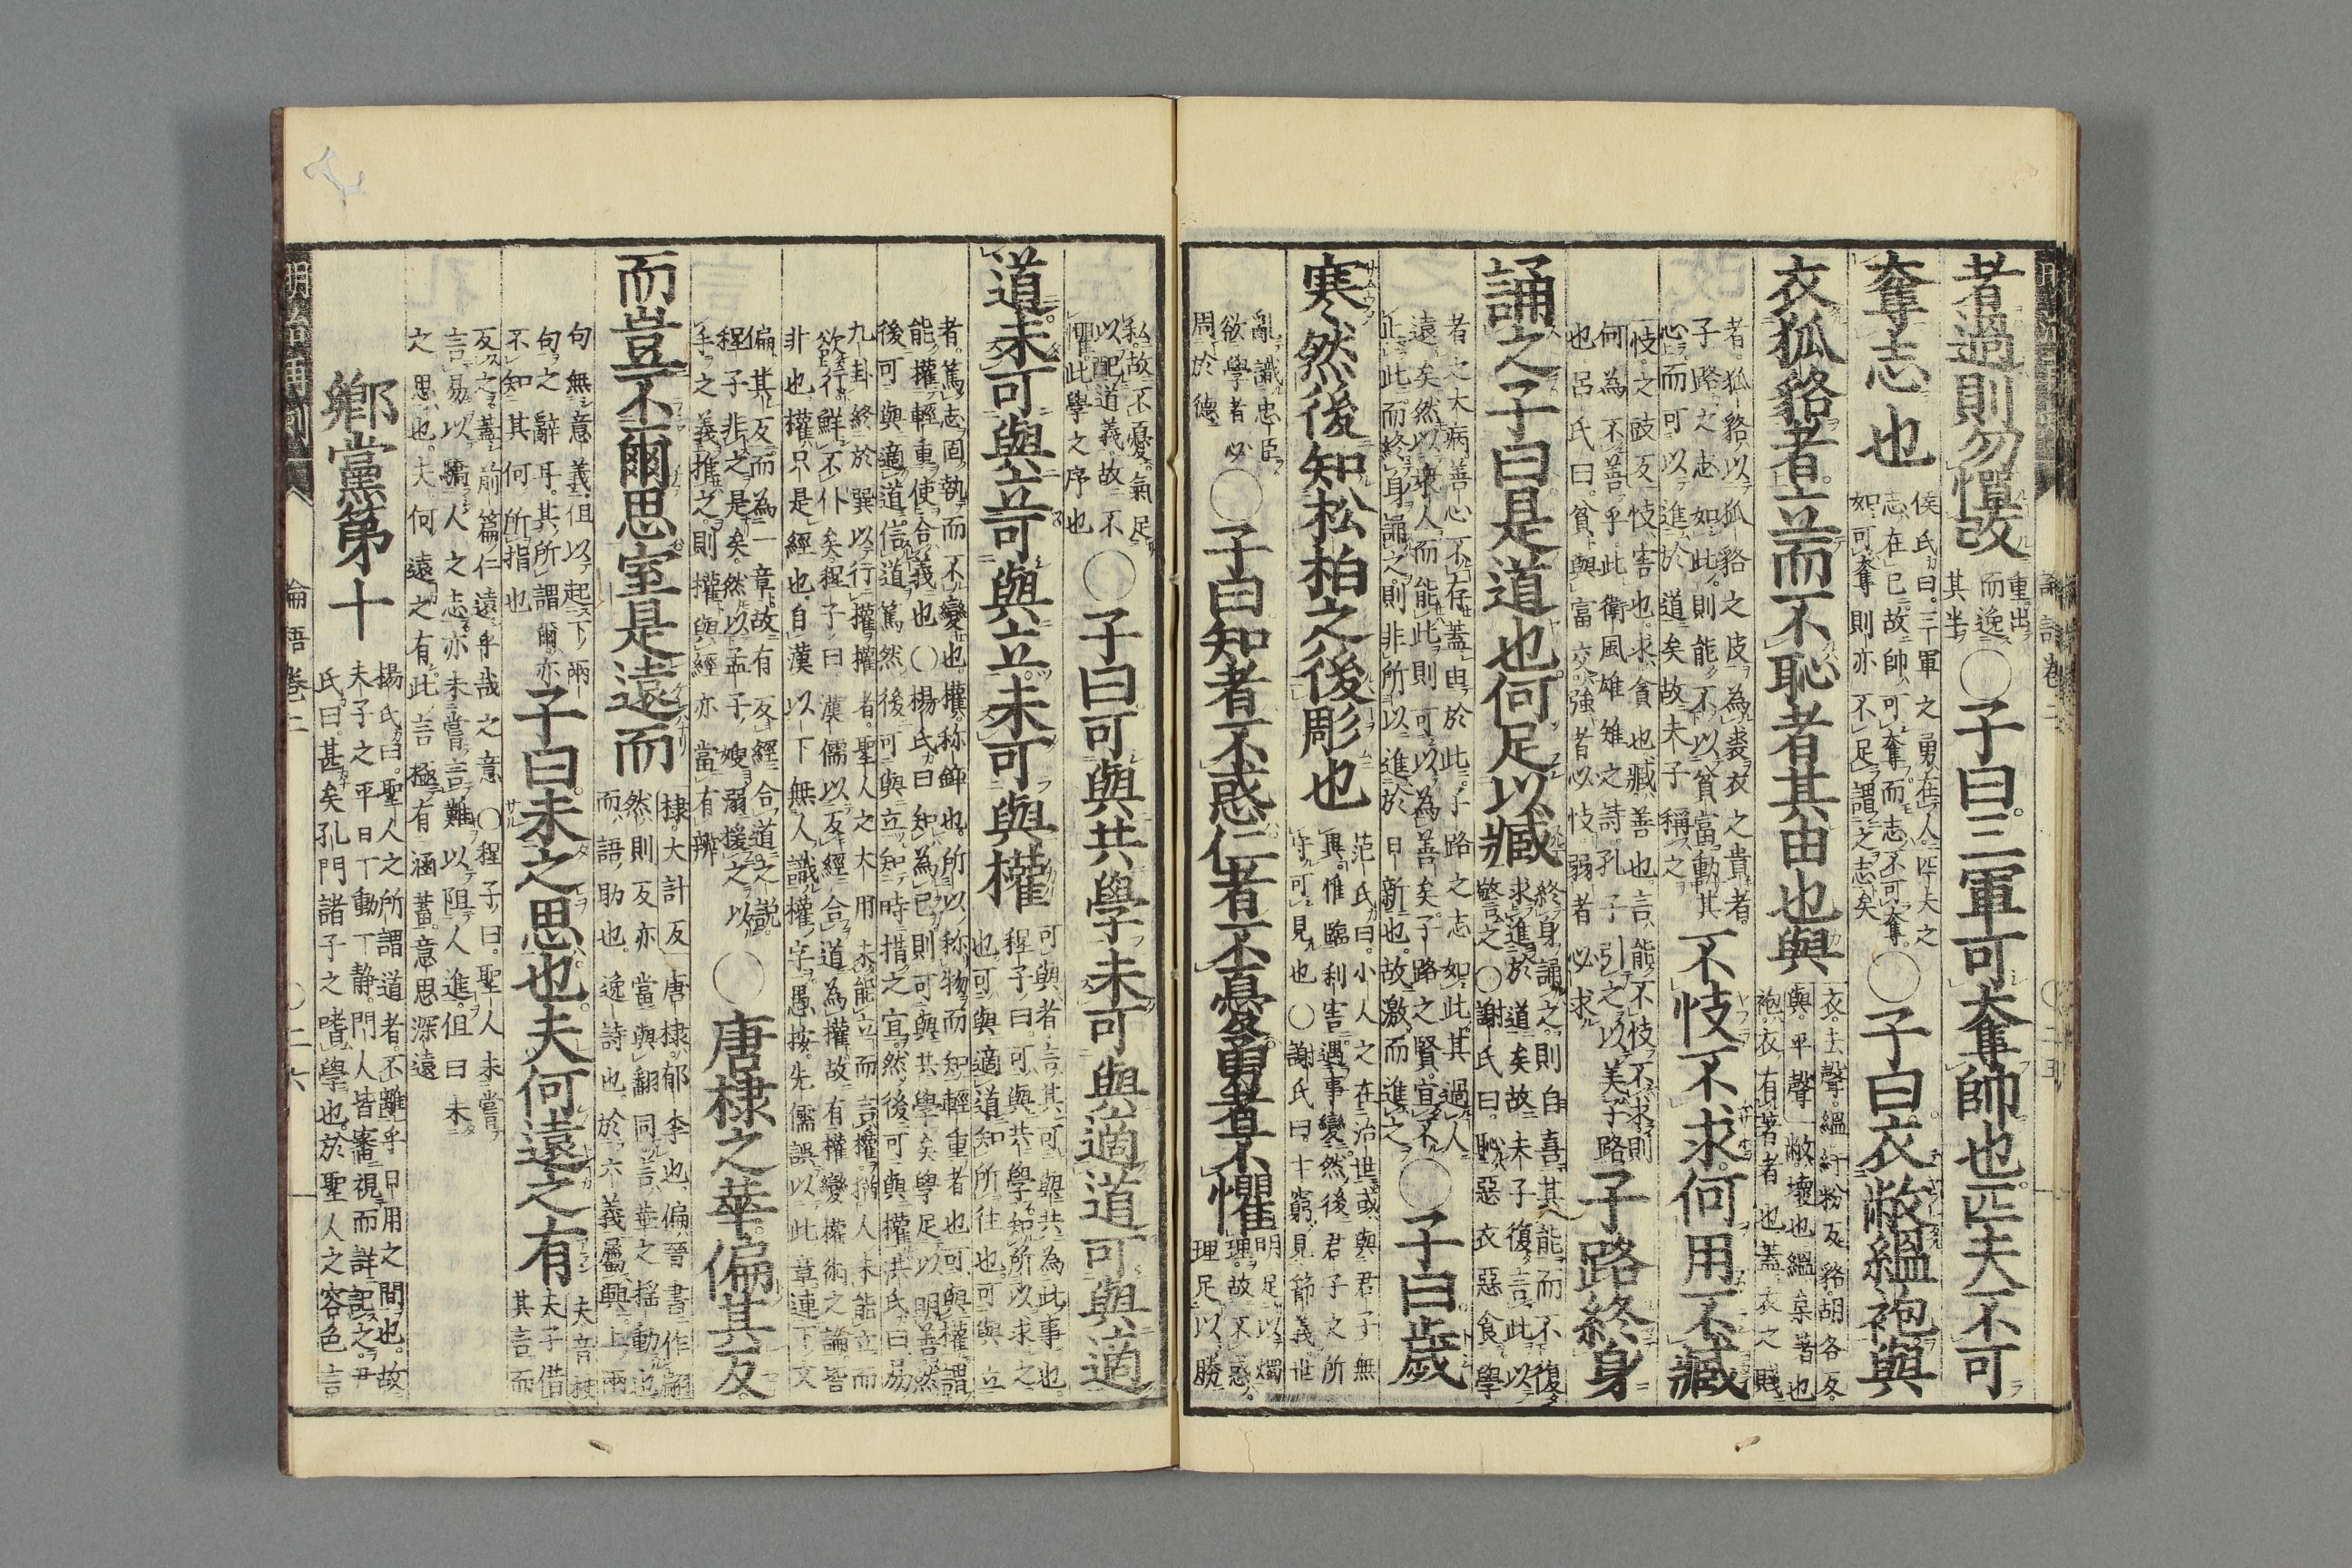 者過則勿憚改
重出
而逸
其半
○子曰三軍可奪帥也匹夫不可
奪志也
侯氏曰三軍之勇在人匹夫之
志在已故帥可奪而志不可奪
如可奪則亦不足謂之志矣
○子曰衣敝縕袍與
衣狐貉者立而不恥者其由也與
衣去聲縕紆粉反貉胡各反
與平聲 敝壞也縕枲著也
袍衣有著者也蓋衣之賤
者狐貉以狐貉之皮為裘衣之貴者
子路之志如此則能不以貧富動其
心而可以進於道矣故夫子稱之
不忮不求何用不臧
忮之豉反忮害也求貪也臧善也言能不忮不求則
何為不善乎此衛風雄雉之詩孔子引之以美子路
也呂氏曰貧與富交強者必忮弱者必求
子路終身
誦之子曰是道也何足以臧
終身誦之則自喜其能而不復
求進於道矣故夫子復言此以
警之○謝氏曰恥惡衣惡食學
者之大病善心不存蓋由於此子路之志如此其過人
遠矣然以衆人而能此則可以為善矣子路之賢宜不
止此而終身誦之則非所以進於日新也故激而進之
○子曰歲
寒然後知松柏之後彫也
范氏曰小人之在治世或與君子無
異惟臨利害遇事變然後君子之所
守可見也○謝氏曰士窮見節義世
亂識忠臣
欲學者必
周於德
○子曰知者不惑仁者不憂勇者不懼
明足以燭
理故不惑
理足以勝
私故不憂氣足
以配道義故不
懼此學之序也
○子曰可與共學未可與適道可與適
道未可與立可與立未可與權
可與者言其可與共為此事也
程子曰可與共學知所以求之
也可與適道知所往也可與立
者篤志固執而不變也權稱錘也所以稱物而知輕重者也可與權謂
能權輕重使合義也○楊氏曰知為己則可與共學矣學足以明善然
後可與適道信道篤然後可與立知時措之宜然後可與權洪氏曰易
九卦終於巽以行權權者聖人之大用未能立而言權猶人未能立而
欲行鮮不仆矣程子曰漢儒以反經合道為權故有權變權術之論皆
非也權只是經也自漢以下無人識權字愚按先儒誤以此章連下文
偏其反而為一章故有反經合道之說
程子非之是矣然以孟子嫂溺援之以
手之義推之則權與經亦當有辨
○唐棣之華偏其反
而豈不爾思室是遠而
棣大計反 唐棣郁李也偏晉書作翩
然則反亦當與翻同言華之搖動也
而語助也逸詩也於六義屬興上兩
句無意義但以起下兩
句之辭耳其所謂爾亦
不知其何所指也
子曰未之思也夫何遠之有
夫音扶
夫子借
其言而
反之蓋前篇仁遠乎哉之意○程子曰聖人未嘗
言易以驕人之志亦未嘗言難以阻人進但曰未
之思也夫何遠之有此言極有涵蓄意思深遠
鄉黨第十
楊氏曰聖人之所謂道者不離乎日用之間也故
夫子之平日一動一静門人皆審視而詳記之尹
氏曰甚矣孔門諸子之嗜學也於聖人之容色言
論語卷二
○二六